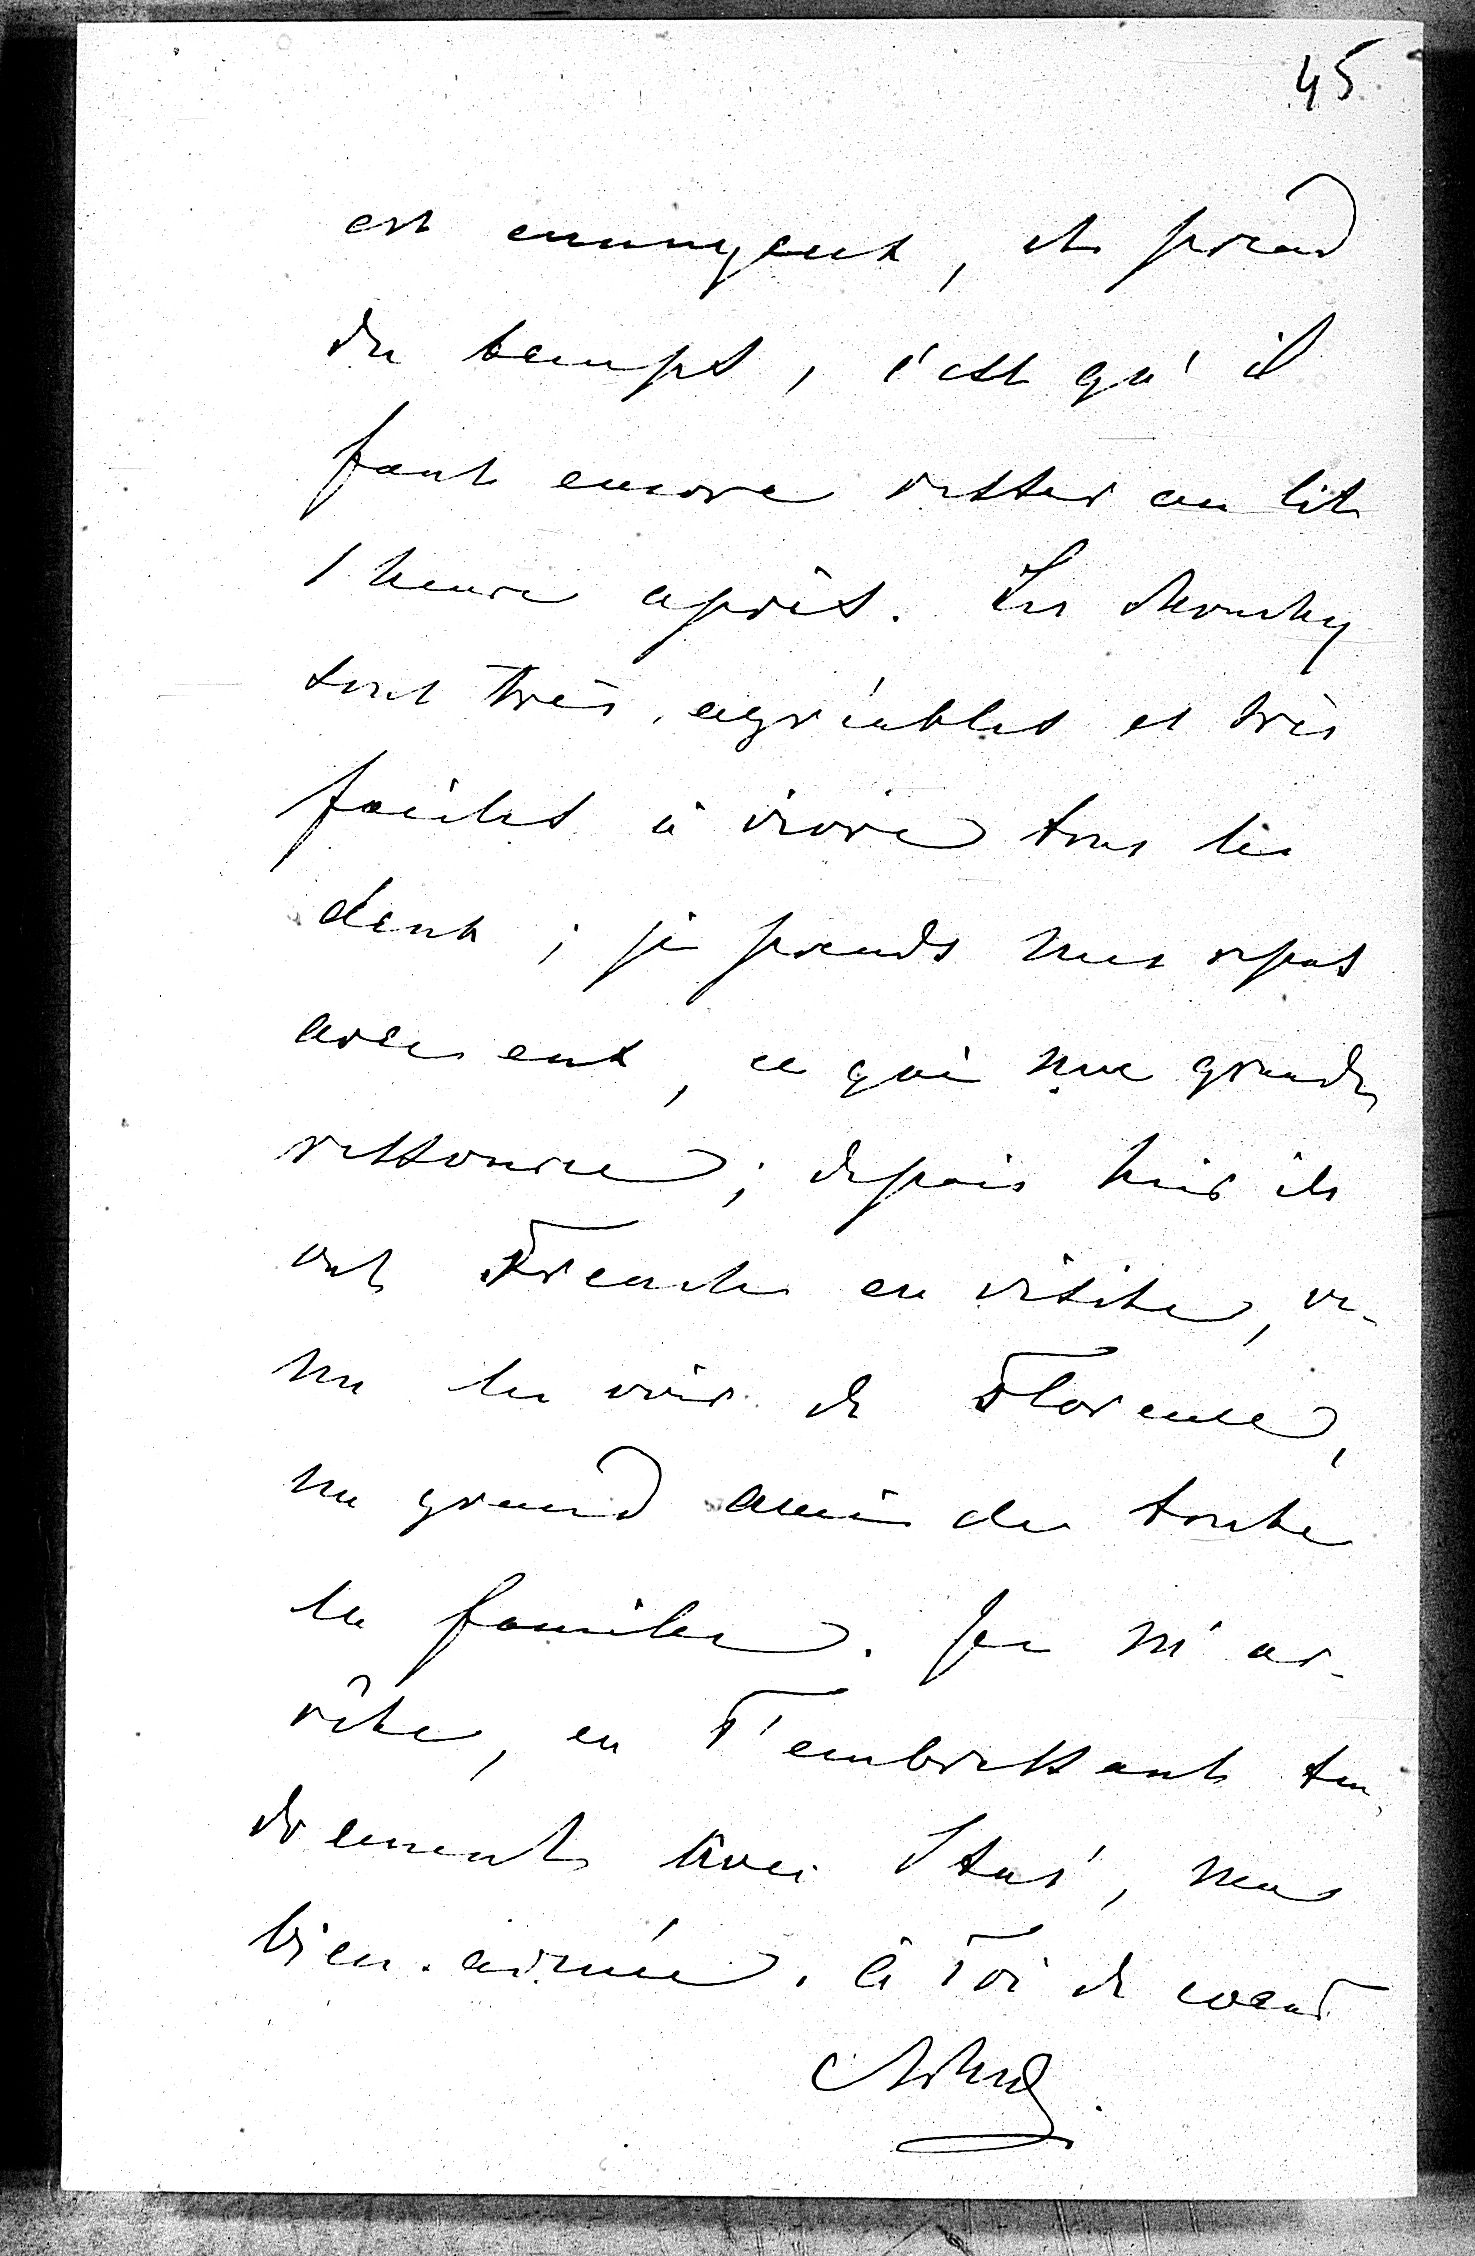 45
est ennuyeux, et prend
du temps, c'est qu'il
faut encore rester au lit
1 heure après. Les Mouchy
sont très agréables et très
faciles à vivre tous les
deux ; je prends mes repas
avec eux, ce qui une grande
ressource ; depuis hier ils
ont en visite, ve-
nu les voir de Florence,
un grand ami de toute
la famille. Je m'ar-
rête, en T'embrassant ten-
drement avec , ma
bien-aimée. à Toi de coeur